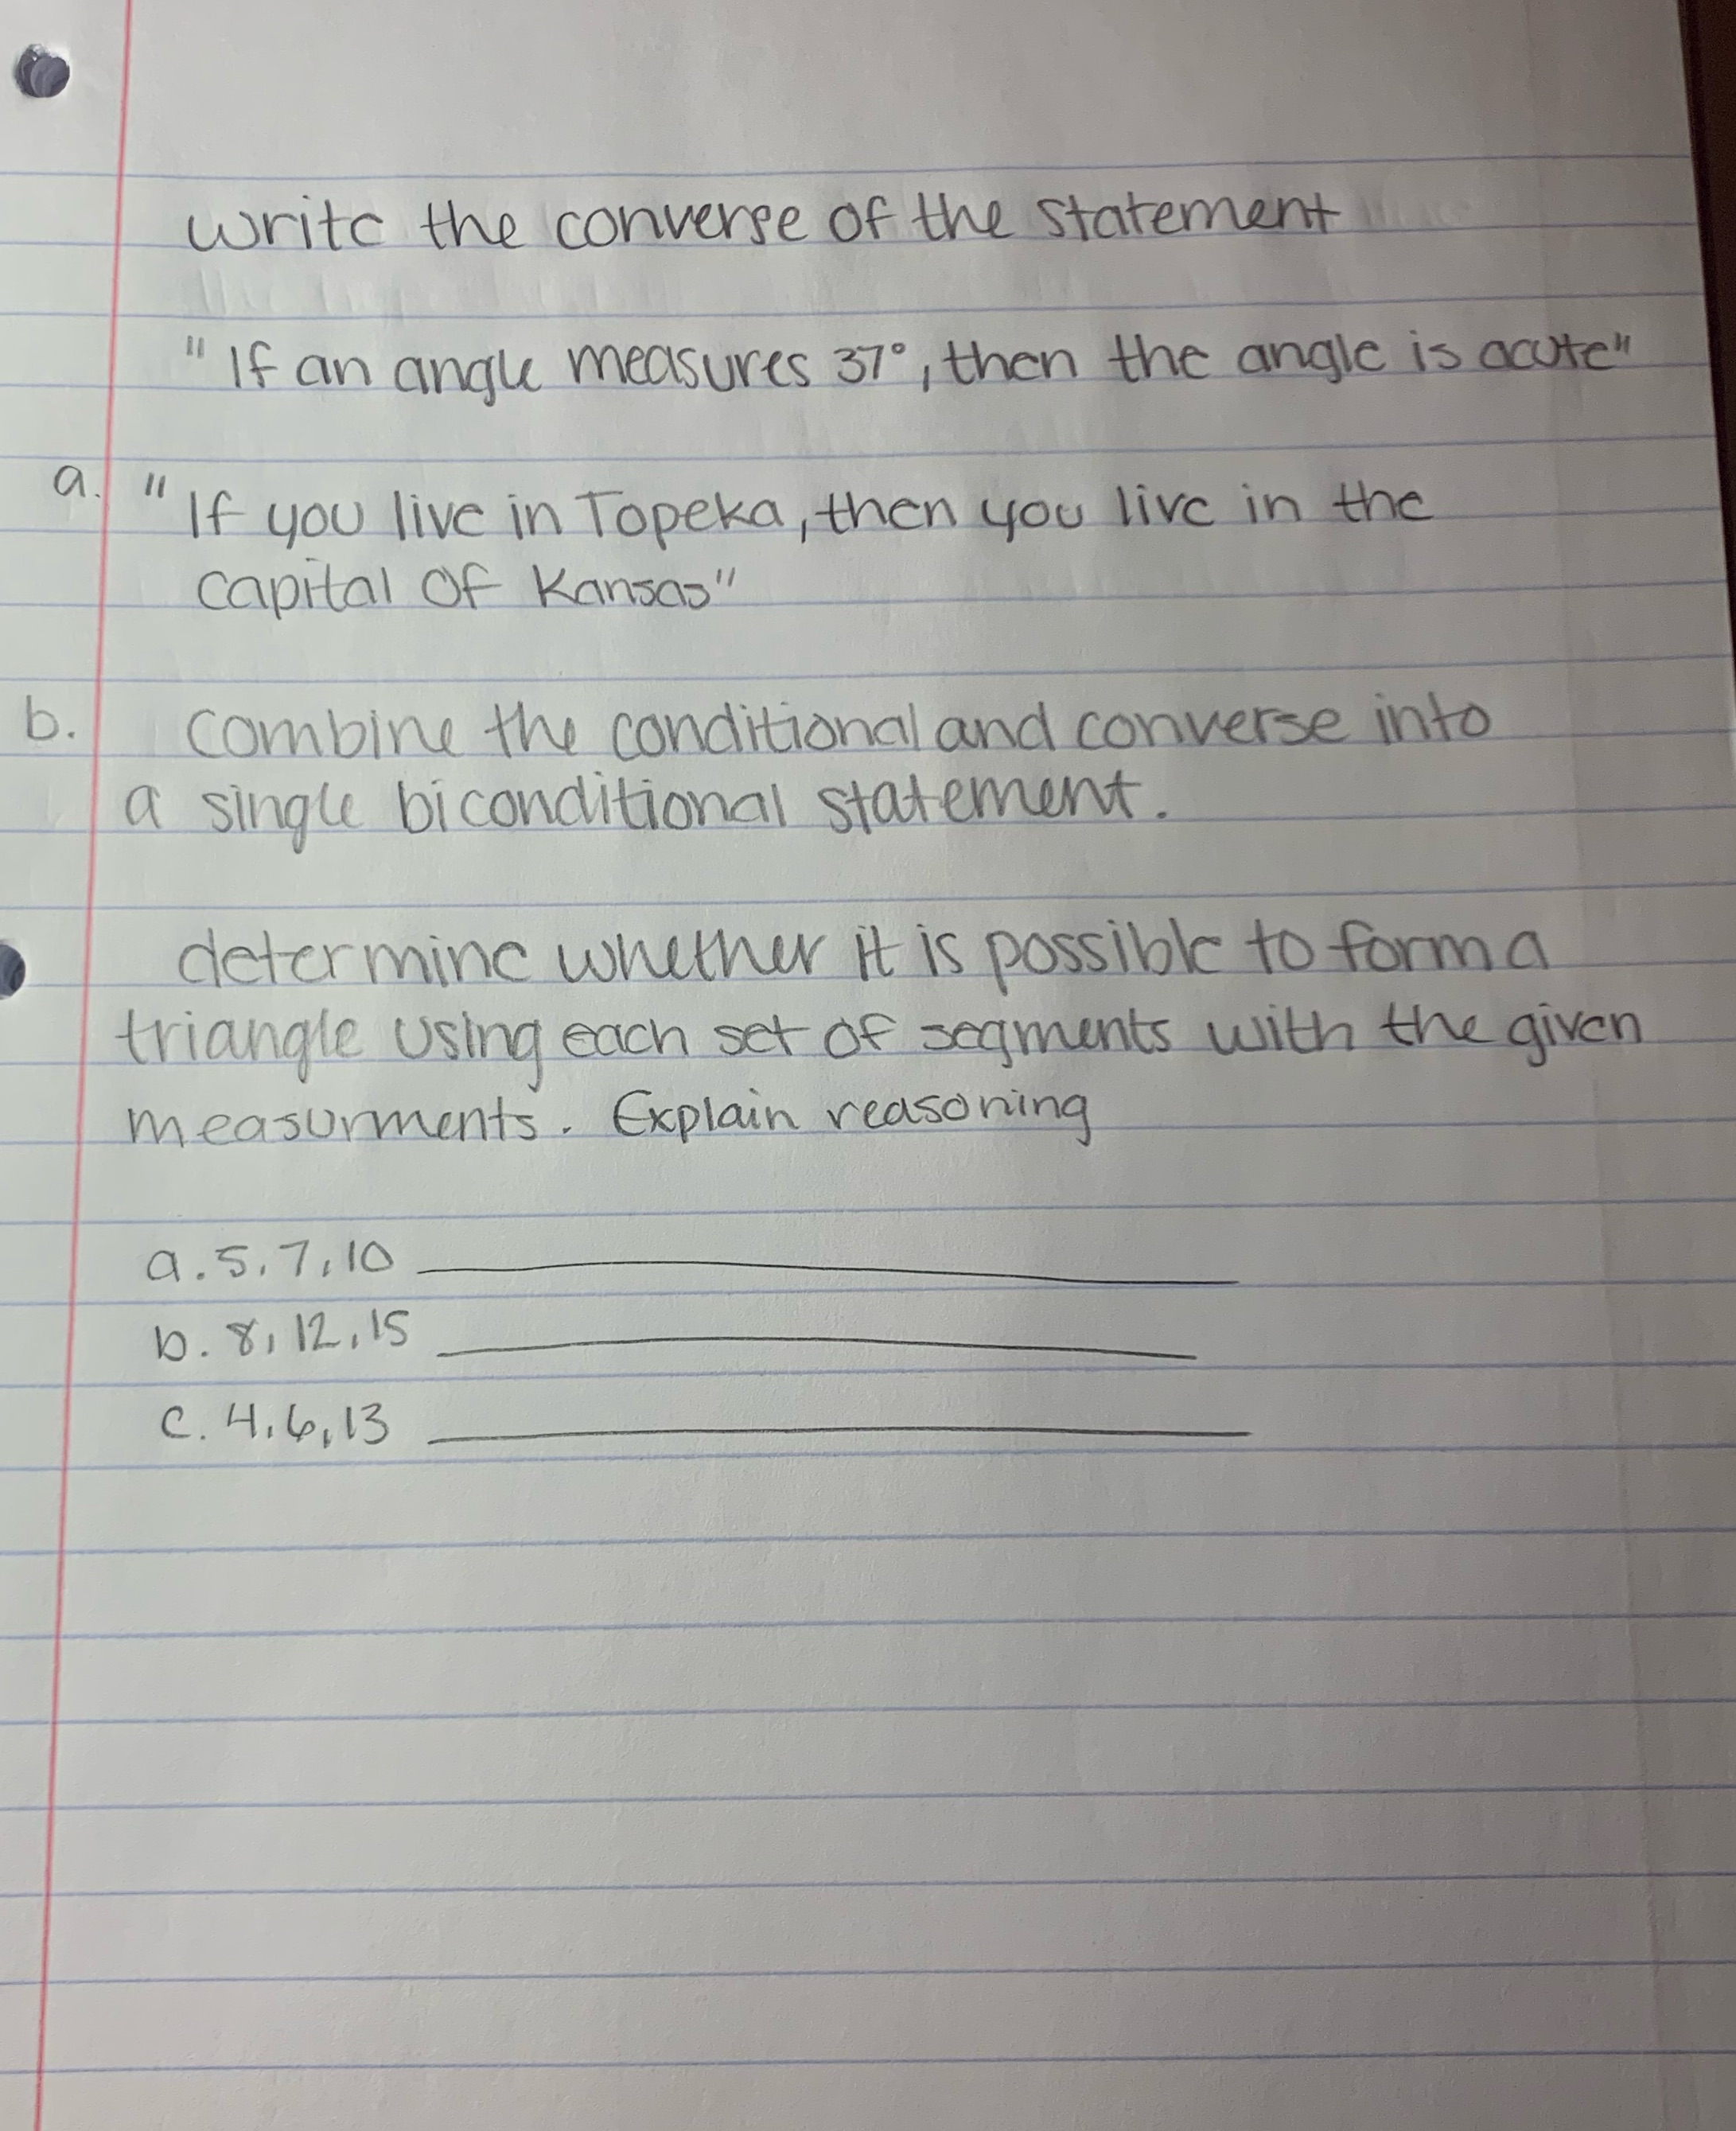 write the converse of the statement
"If an angle measures 37°, then the angle is acute"
a. "If you live in Topeka, then you live in the
capital of Kansas"
b. combine the conditional and converse into
a single biconditional statement.
determine whether it is possible to form a
triangle using each set of segments with the given
measurments. Explain reasoning
a. 5, 7, 10
b. 8, 12, 15
c. 4, 6, 13